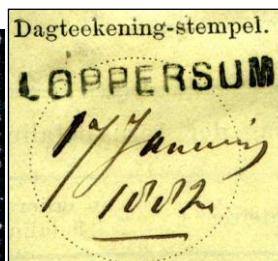 Dagteekening-stempel.
LOPPERSUM
17 Januarij
1882